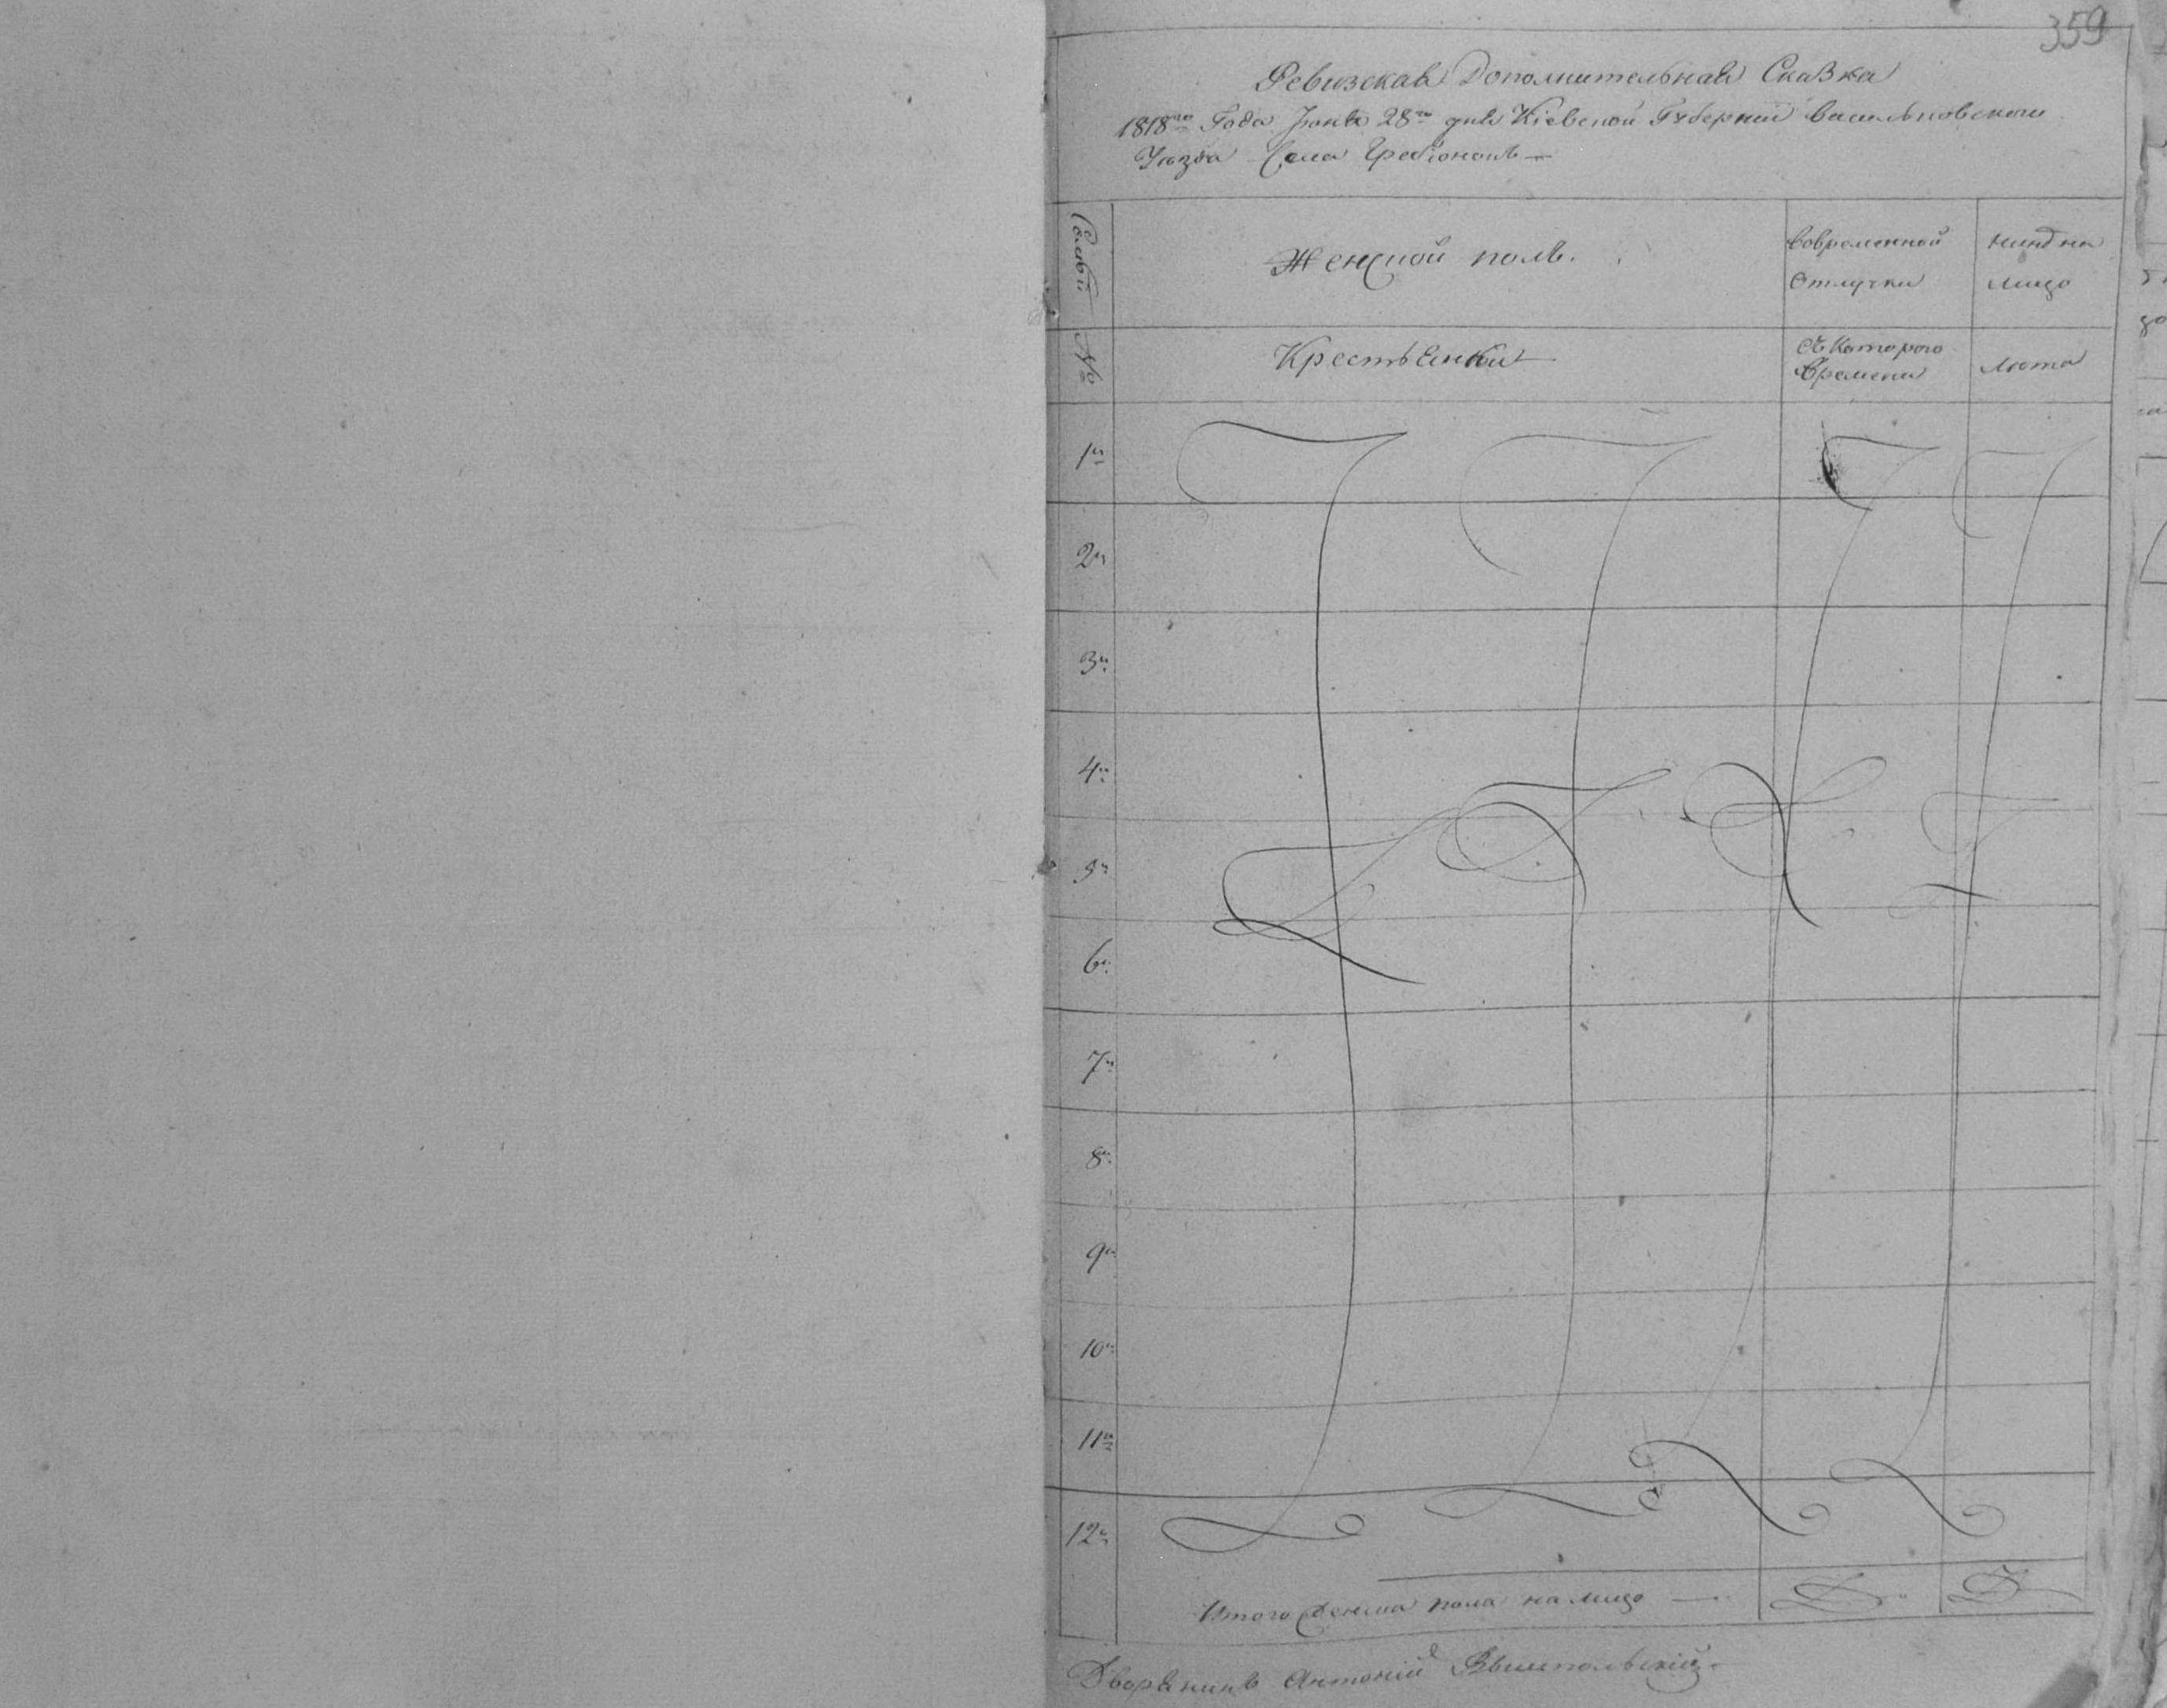 359
Ревизскаѧ Дополнительнаѧ Сказка
1818го Года Июнѧ 28го днѧ Кіевской Губерніи васильковского
Уезда Села
Семьи
Женской полъ.
вовременной
отлучки
нине на
лицо
№
Крестьѧнки
съ Которого
времени
Лета
1я
2я
3я
4я
5я
6я
7я
8я
9я
10я
11я
12я
Итого женска пола налицо —
Дворѧнинъ Антоній